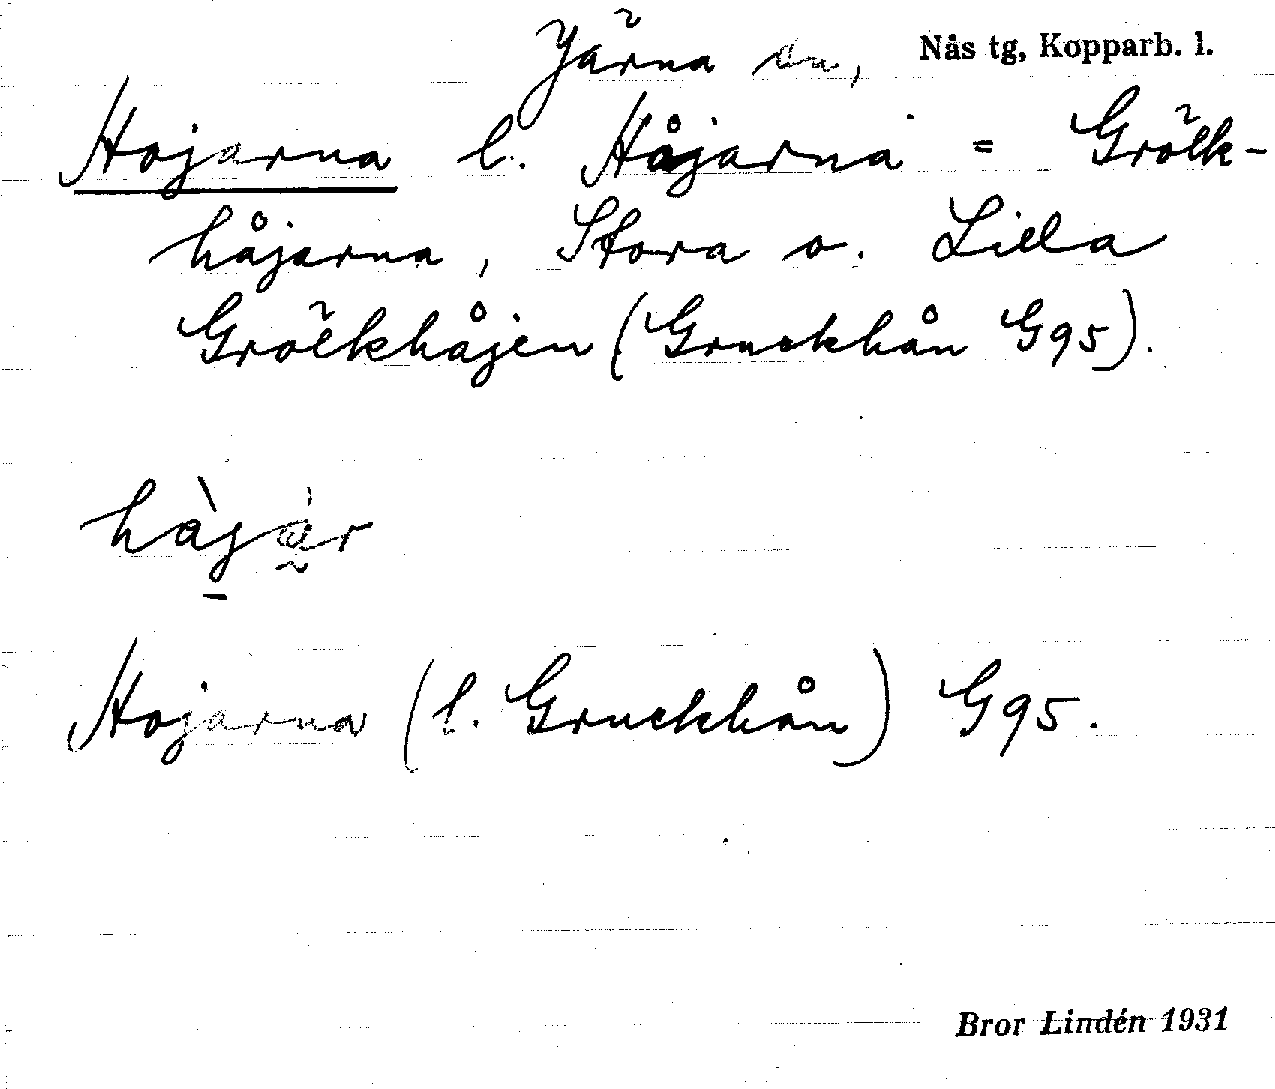 Järna sn, Nås tg, Kopparb. l.
Hojarna l. Håjarna = Grölk-
håjarna, Stora o. Lilla
Grölkhåjen (Gruckhån G95).
hàjàr
Hojarna (l. Gruckhån) G95.
Bror Lindén 1931